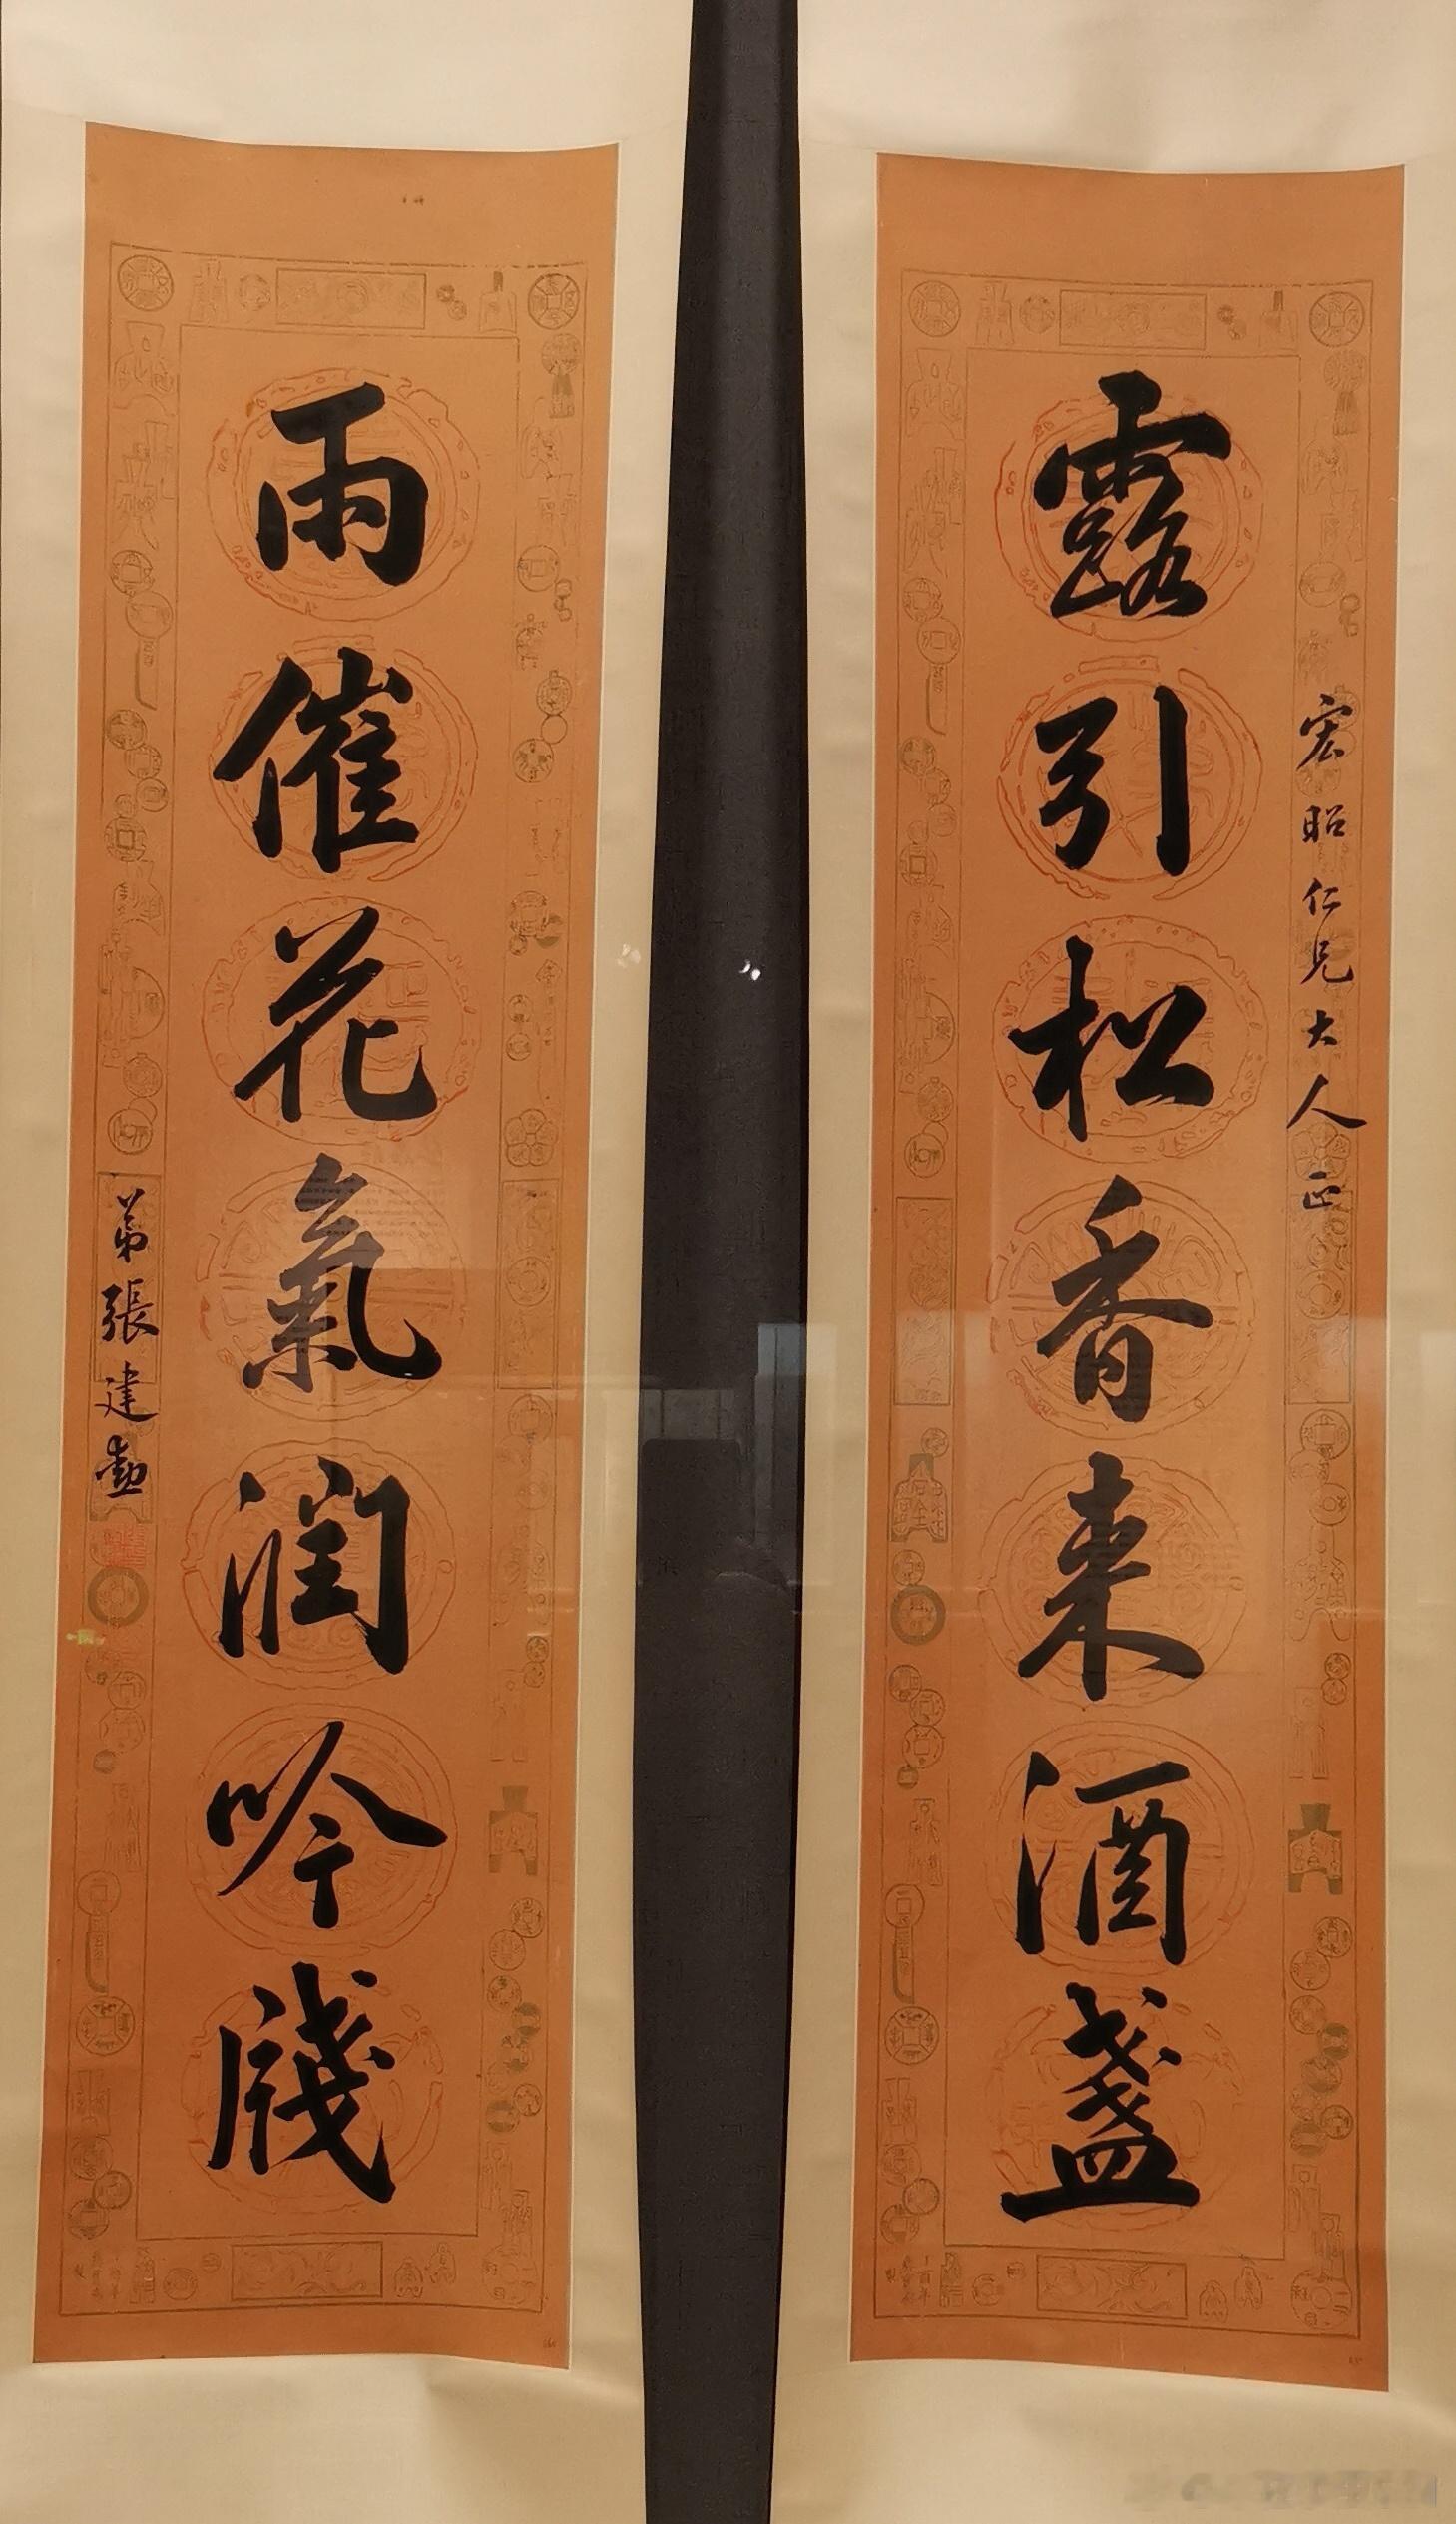 宏昭仁兄大人正
露引松香来酒盏
雨催花氣润吟牋
弟張建勳